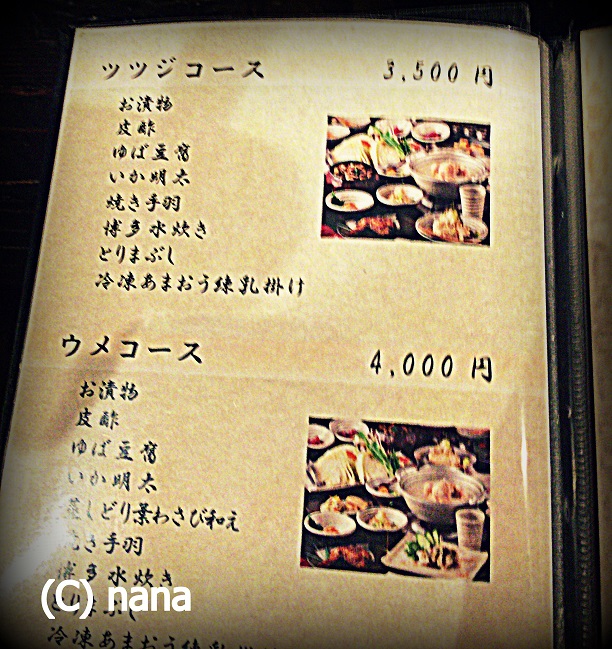 ツツジコース 3,500 円
お漬物
皮酢
ゆば豆腐
いか明太
焼き手羽
博多水炊き
とりまぶし
冷凍あまおう練乳掛け
ウメコース 4,000 円
お漬物
皮酢
ゆば豆腐
いか明太
蒸しどり葉わさび和え
焼き手羽
博多水炊き
とりまぶし
冷凍あまおう練乳掛
(C) nana